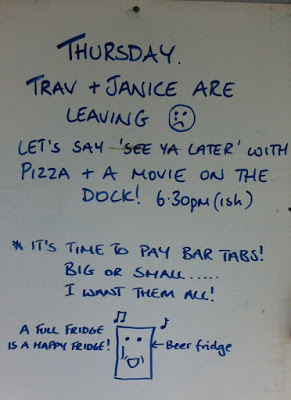 THURSDAY.
TRAV + JANICE ARE
LEAVING
LET'S SAY 'SEE YA LATER' WITH
PIZZA + A MOVIE ON THE
DOCK! 6.30PM (ish)
* IT'S TIME TO PAY BAR TABS!
BIG OR SMALL.....
I WANT THEM ALL!
A FULL FRIDGE
IS A HAPPY FRIDGE!
Beer fridge